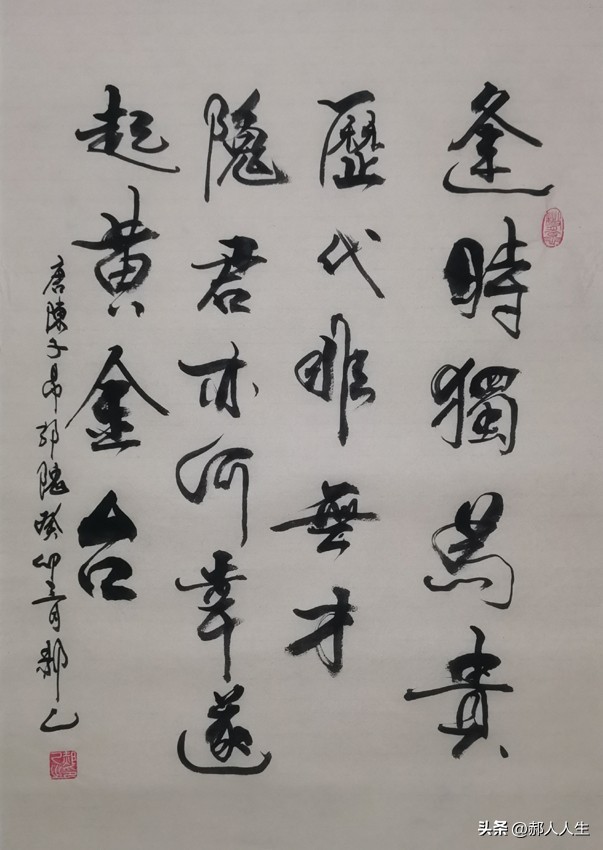 逢時獨為貴
歷代非無才
隗君亦何幸遂
起黄金台
唐陳子昂郭隗癸卯三月郝
头条 @郝人人生